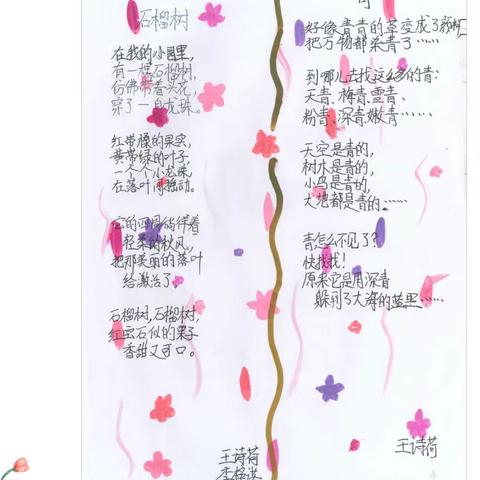 石榴树
在我的小园里，
有一棵石榴树，
仿佛带着头花，
穿了一身龙珠。
红带橙的果实，
黄带绿的叶子，
一个个小龙珠，
在落叶间摇动。
它的四周徜徉着
轻柔的秋风，
把那美丽的落叶
给激活了。
石榴树，石榴树，
红宝石似的果子
香甜又可口。
王诗荷
青
好像青青的草变成了颜料
把万物都染青了……
到哪儿去找这么多的青：
天青、梅青、雪青、
粉青、深青、嫩青……
天空是青的，
树木是青的，
小鸟是青的，
大地都是青的……
青怎么不见了？
快找找！
原来它是用深青
躲到了大海的蓝里……
王诗荷
4